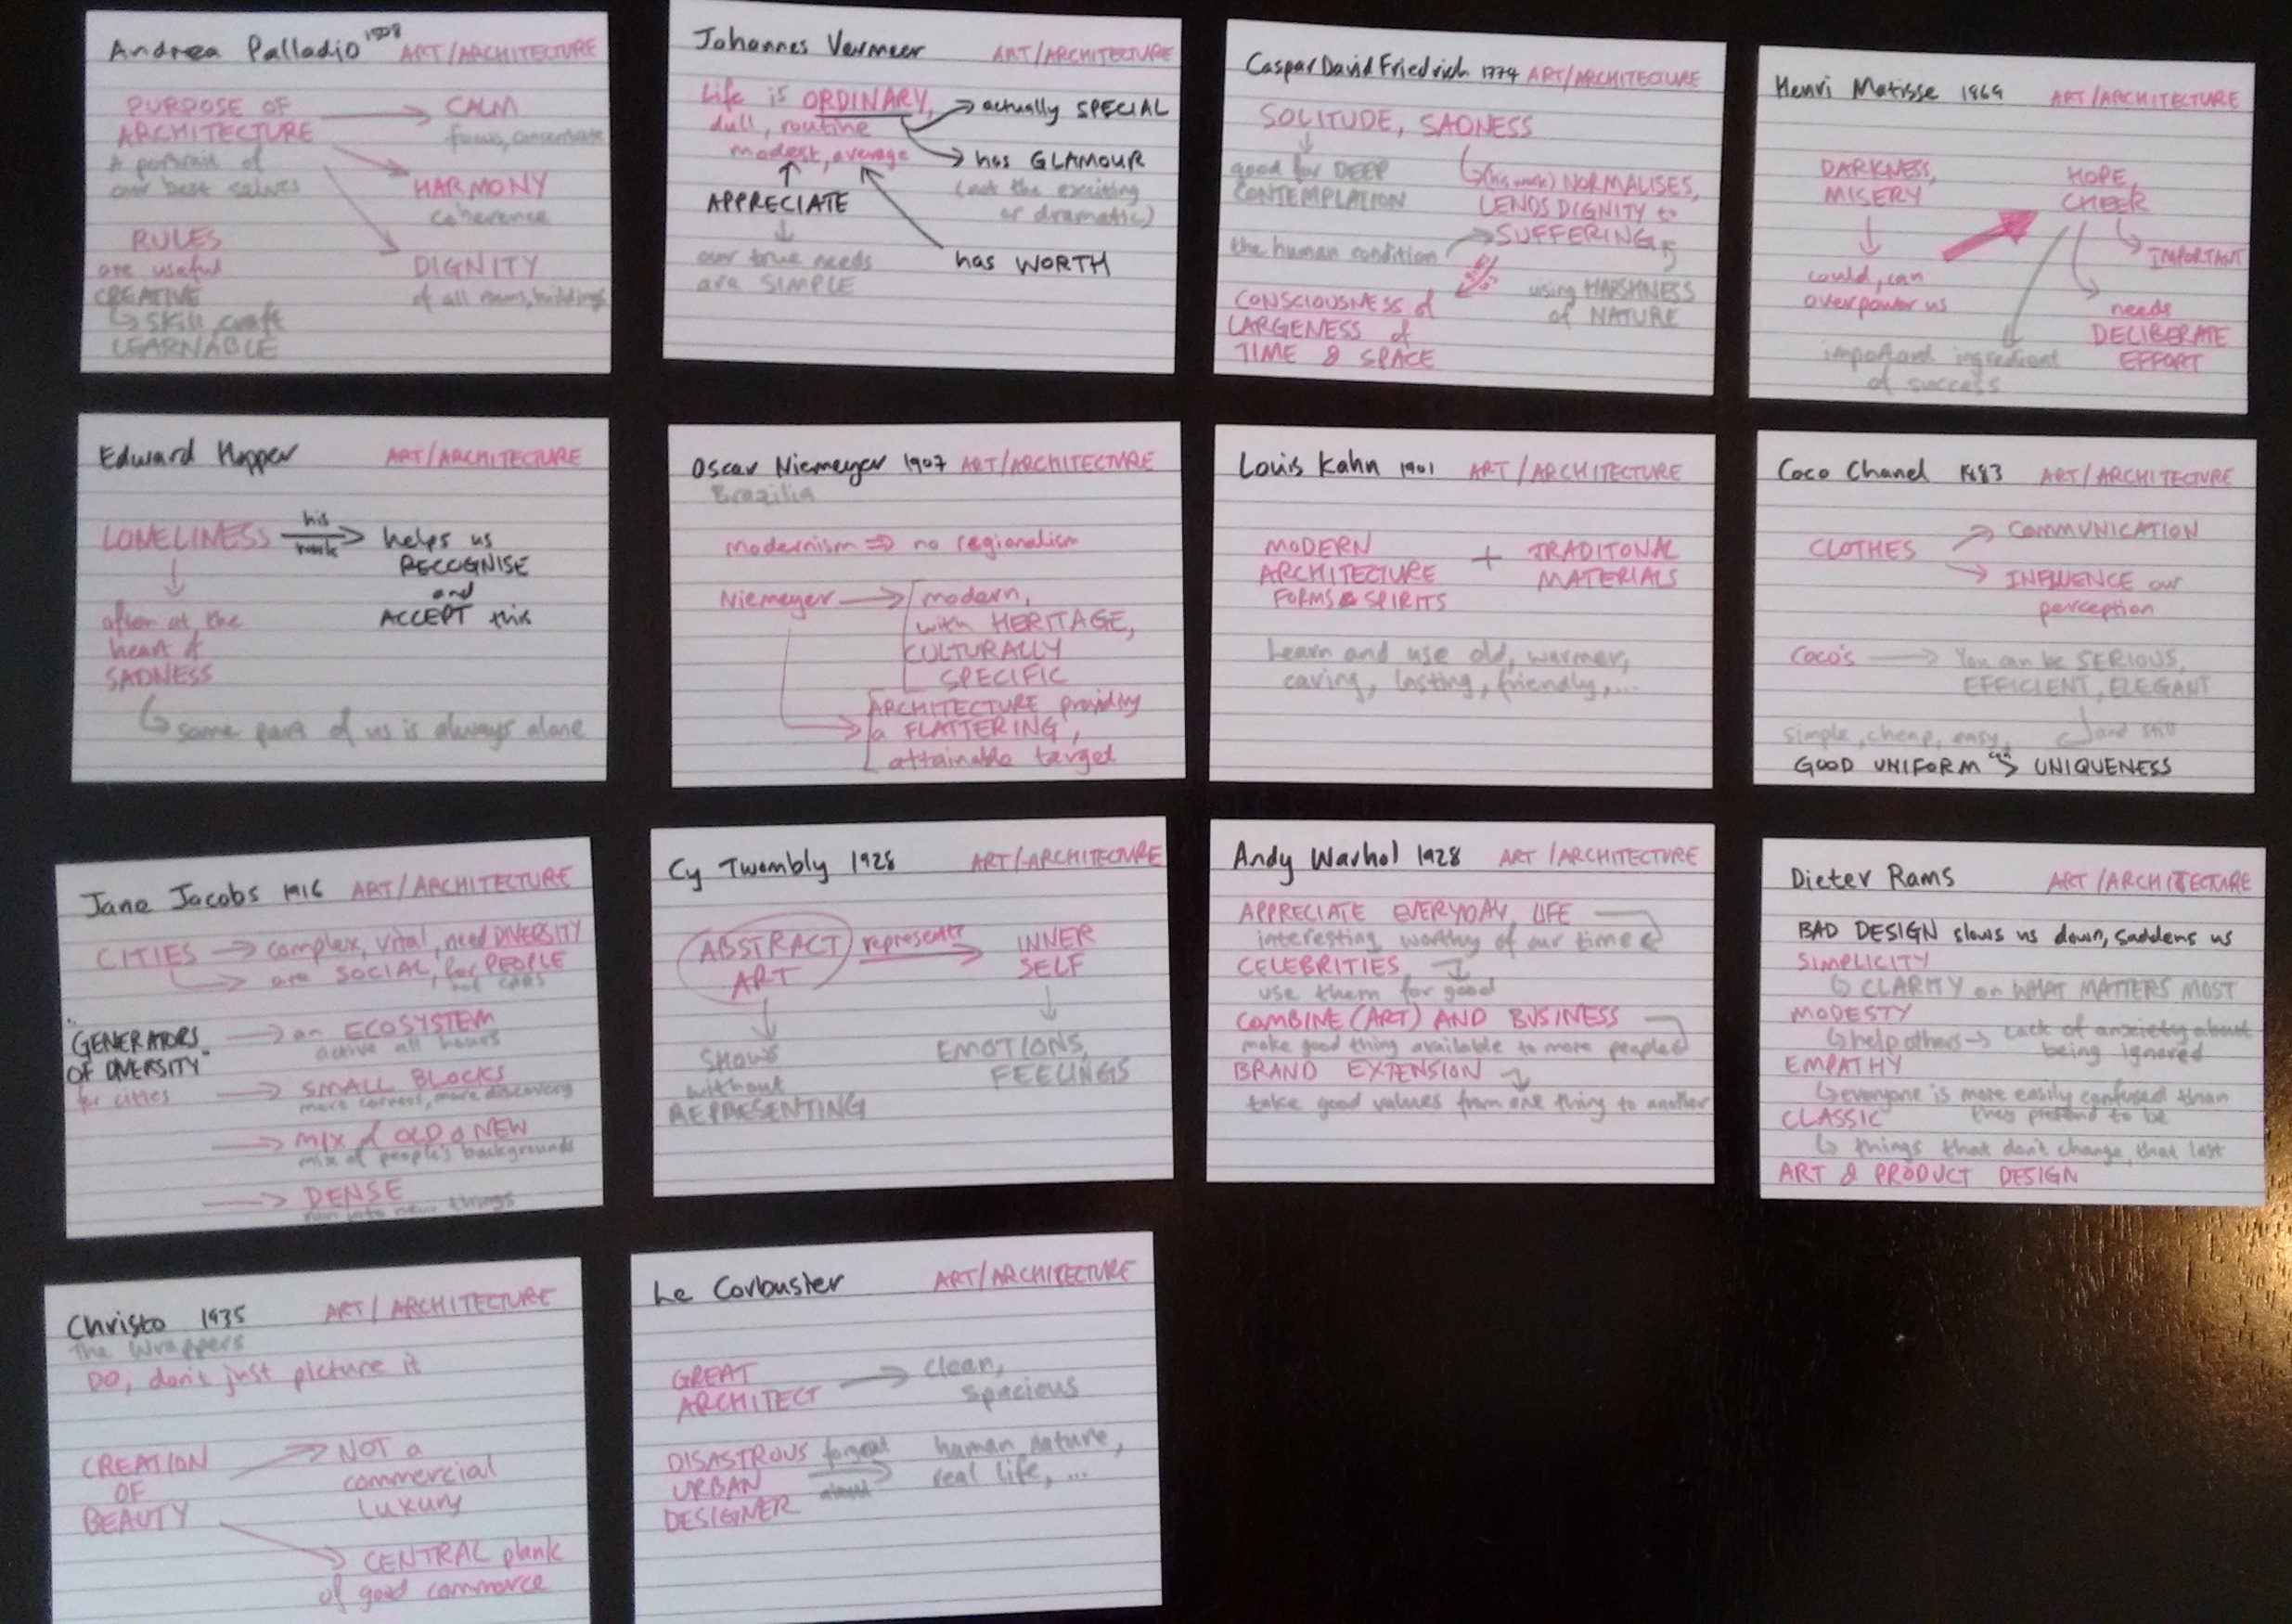 Andrea Palladio 1508 ART/ARCHITECTURE
PURPOSE OF
ARCHITECTURE
A portrait of
our best selves
CALM
focus, concentrate
HARMONY
coherence
DIGNITY
of all rooms, buildings
RULES
are useful
CREATIVE
skill, craft
LEARNABLE
Johannes Vermeer ART/ARCHITECTURE
Life is ORDINARY,
dull, routine
modest, average
actually SPECIAL
has GLAMOUR
(not the exciting
or dramatic)
APPRECIATE
our true needs
are SIMPLE
has WORTH
Caspar David Friedrich 1774 ART/ARCHITECTURE
SOLITUDE, SADNESS
good for DEEP
CONTEMPLATION
(his work) NORMALISES,
LENDS DIGNITY to
SUFFERING
the human condition
using HARSHNESS
of NATURE
CONSCIOUSNESS of
LARGENESS of
TIME & SPACE
Henri Matisse 1869 ART/ARCHITECTURE
DARKNESS,
MISERY
could, can
overpower us
HOPE,
CHEER
IMPORTANT
needs
DELIBERATE
EFFORT
important ingredient
of success
Edward Hopper ART/ARCHITECTURE
LONELINESS
his
work
helps us
RECOGNISE
and
ACCEPT this
often at the
heart of
SADNESS
some part of us is always alone
Oscar Niemeyer 1907 ART/ARCHITECTURE
Brazilia
Modernism ⇒ no regionalism
Niemeyer → modern,
with HERITAGE,
CULTURALLY
SPECIFIC
ARCHITECTURE providing
a FLATTERING,
attainable target
Louis Kahn 1901 ART/ARCHITECTURE
MODERN
ARCHITECTURE
FORMS & SPIRITS
+
TRADITONAL
MATERIALS
Learn and use old, warmer,
caring, lasting, friendly, ...
Coco Chanel 1883 ART/ARCHITECTURE
CLOTHES
COMMUNICATION
INFLUENCE our
perception
Coco's → You can be SERIOUS,
EFFICIENT, ELEGANT
simple, cheap, easy, and still
GOOD UNIFORM can → UNIQUENESS
Jane Jacobs 1916 ART/ARCHITECTURE
CITIES → complex, vital, need DIVERSITY
→ are SOCIAL, for PEOPLE
not CARS
"GENERATORS
OF DIVERSITY"
for cities
→ an ECOSYSTEM
active all hours
→ SMALL BLOCKS
more corners, more discovery
→ MIX of OLD & NEW
mix of people's backgrounds
→ DENSE
run into new things
Cy Twombly 1928 ART/ARCHITECTURE
ABSTRACT
ART
represents
INNER
SELF
SHOWS
without
REPRESENTING
EMOTIONS,
FEELINGS
Andy Warhol 1928 ART/ARCHITECTURE
APPRECIATE EVERYDAY LIFE
interesting worthy of our time
CELEBRITIES
use them for good
COMBINE (ART) AND BUSINESS
make good thing available to more people
BRAND EXTENSION
take good values from one thing to another
Dieter Rams ART/ARCHITECTURE
BAD DESIGN slows us down, saddens us
SIMPLICITY
CLARITY on WHAT MATTERS MOST
MODESTY
help others → Lack of anxiety about
being ignored
EMPATHY
everyone is more easily confused than
they pretend to be
CLASSIC
things that don't change, that last
ART & PRODUCT DESIGN
Christo 1935 ART/ARCHITECTURE
The Wrappers
DO, don't just picture it
CREATION
OF
BEAUTY
NOT a
commercial
luxury
CENTRAL plank
of good commerce
Le Corbusier ART/ARCHITECTURE
GREAT
ARCHITECT
→ clean,
spacious
DISASTROUS
URBAN
DESIGNER
forgot
about
human nature,
real life, ...